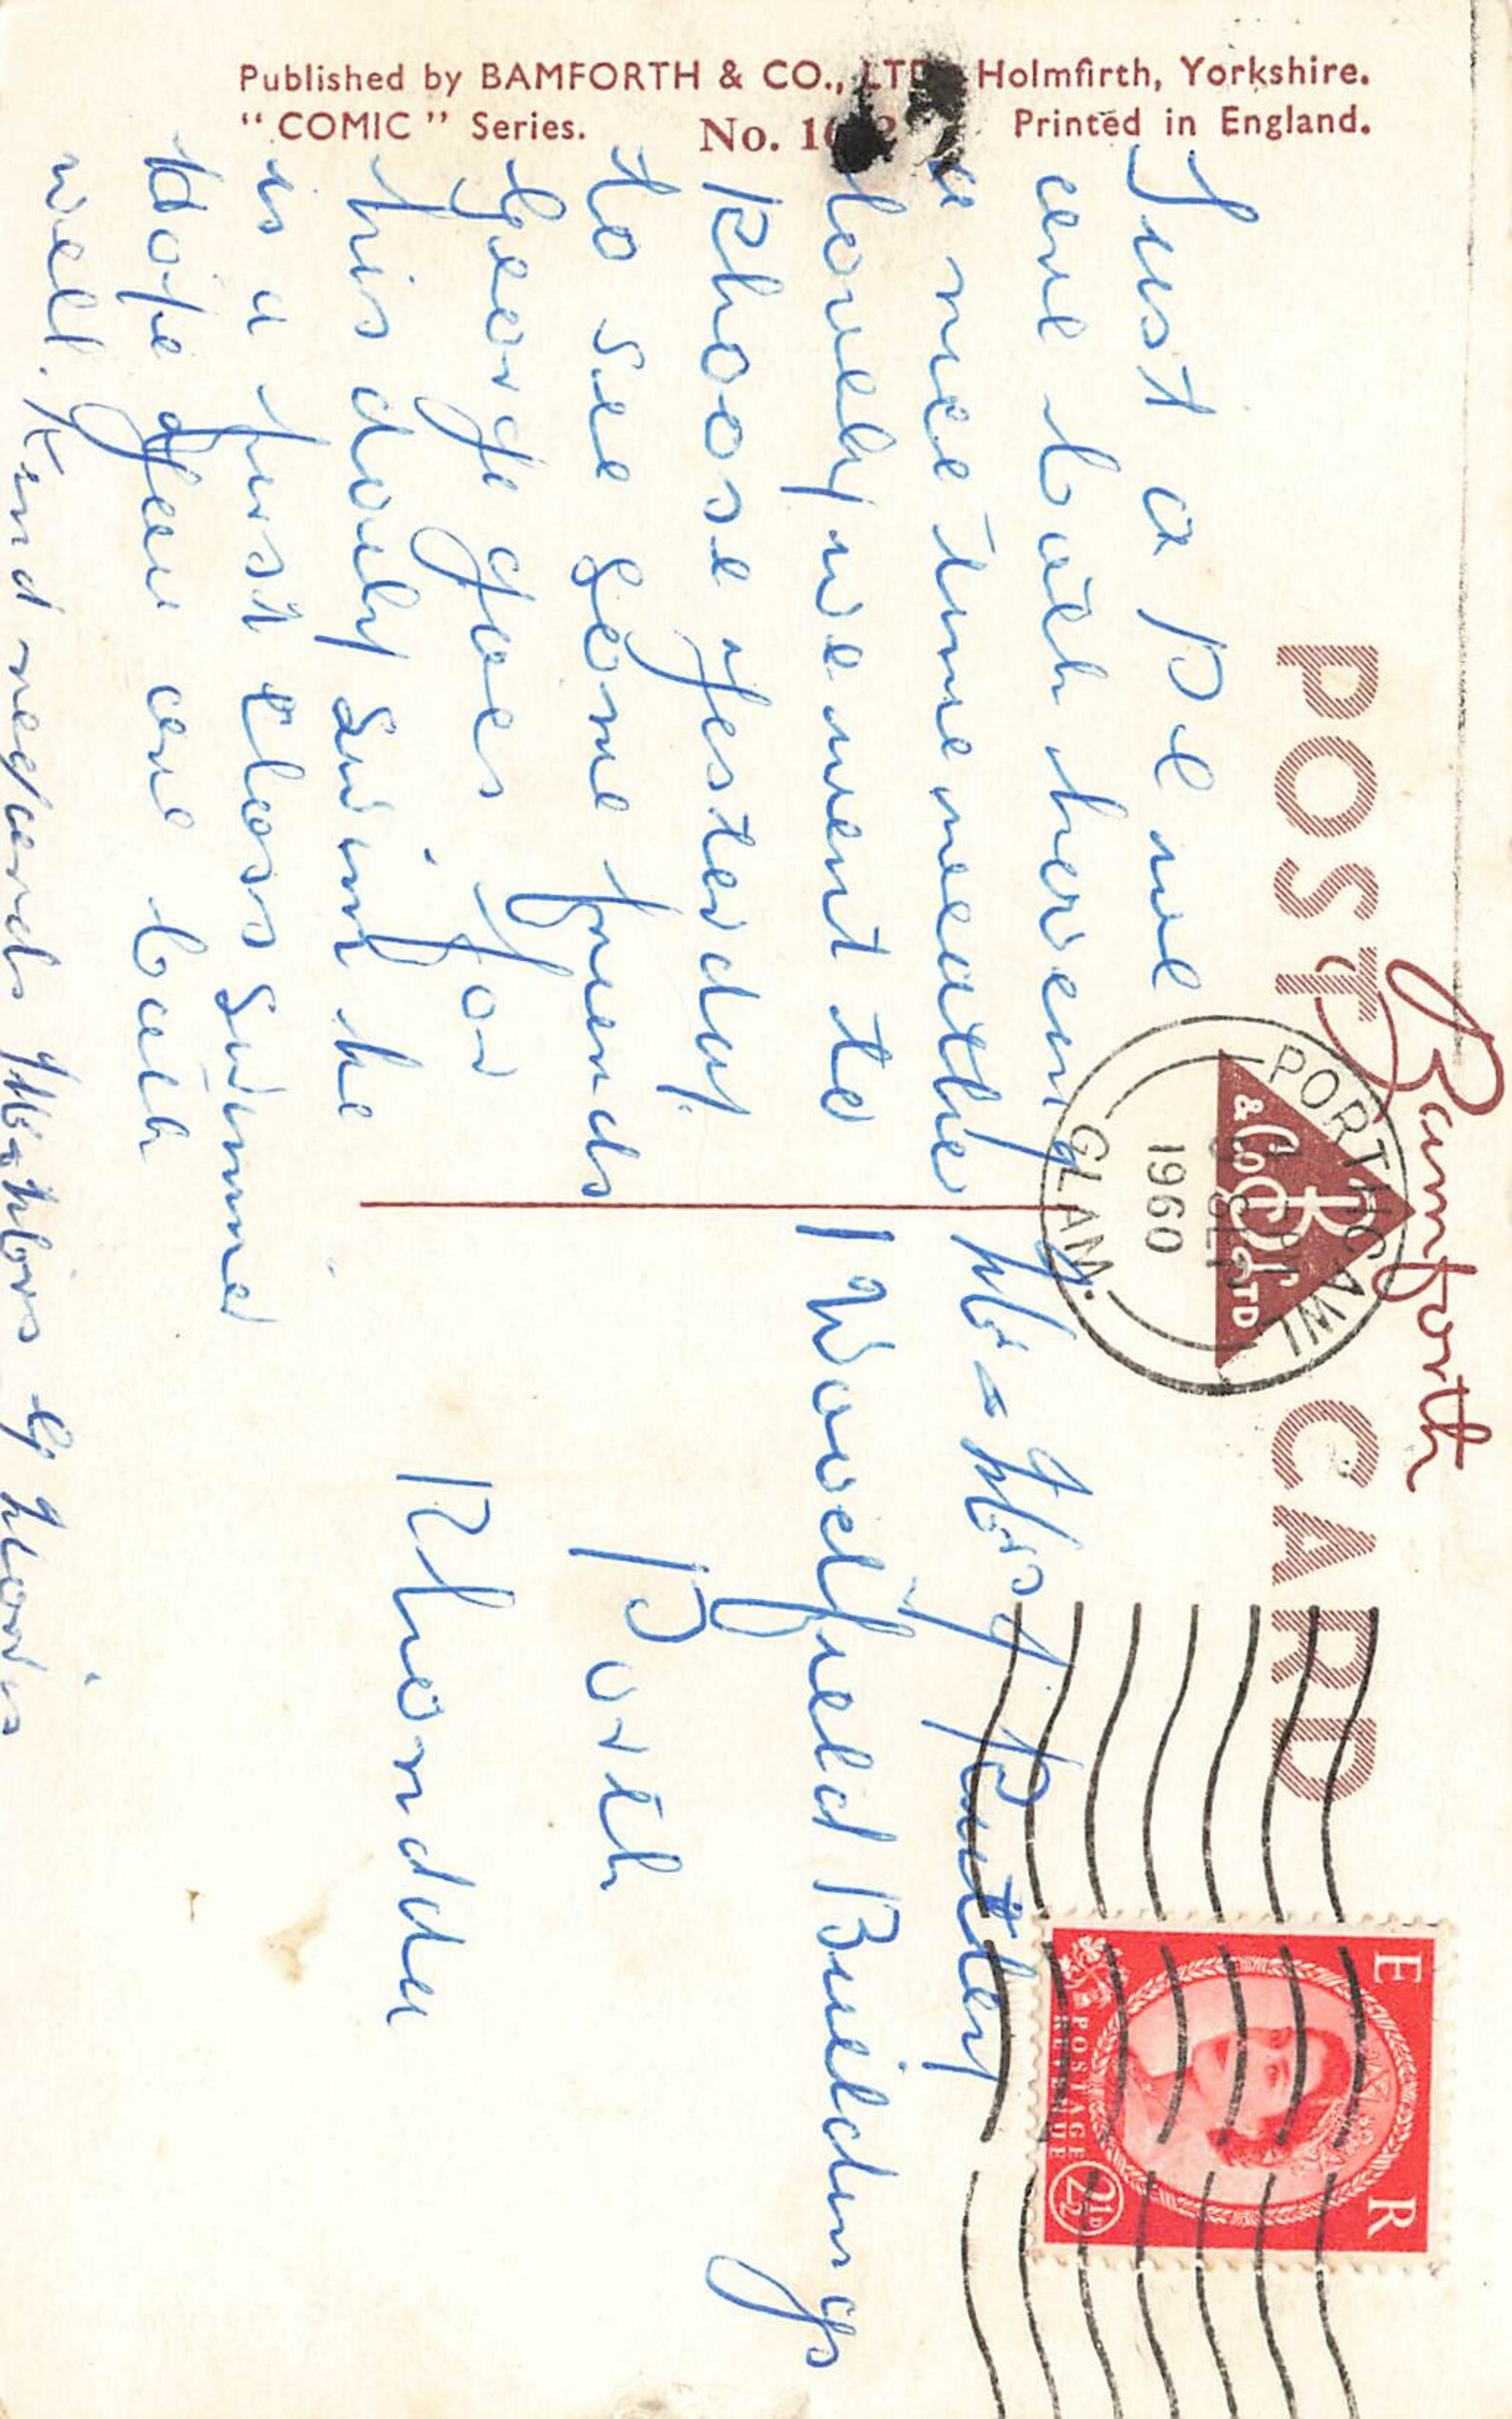 Published by BAMFORTH & CO., LTD Holmfirth, Yorkshire.
"COMIC" Series. No. Printed in England.
POST CARD
Bamforth
& Co LTD
PORTHCAWL
1960
GLAM.
E R
POSTAGE
REVENUE
2½D
Just a P.C we
are both haveing
a nice time weather
lovely we went to
Rhoose yesterday
to see some friends
George goes for
his daily swim he
is a first class swimmer
Hope you are both
well. Kind regards
Mr - Mrs J. Pantley
1 Woodfield Buildings
Porth
Rhondda